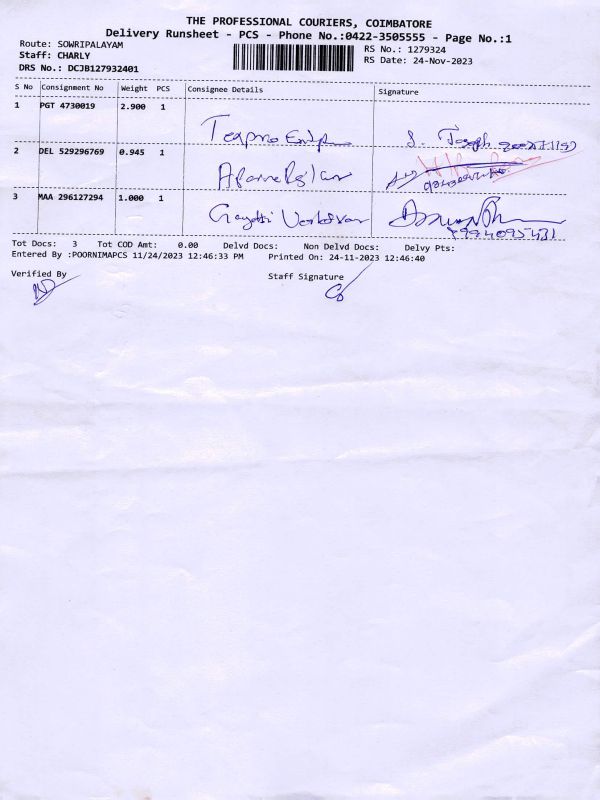 THE PROFESSIONAL COURIERS, COIMBATORE
Delivery Runsheet - PCS - Phone No.:0422-3505555 - Page No.:1
Route: SOWRIPALAYAM RS No.: 1279324
Staff: CHARLY RS Date: 24-Nov-2023
DRS No.: DCJB127932401
S No Consignment No Weight PCS Consignee Details Signature
1 PGT 4730019 2.900 1
2 DEL 529296769 0.945 1
3 MAA 296127294 1.000 1
Gayatri
7994095431
Tot Docs: 3 Tot COD Amt: 0.00 Delvd Docs: Non Delvd Docs: Delvy Pts:
Entered By :POORNIMAPCS 11/24/2023 12:46:33 PM Printed On: 24-11-2023 12:46:40
Verified By Staff Signature